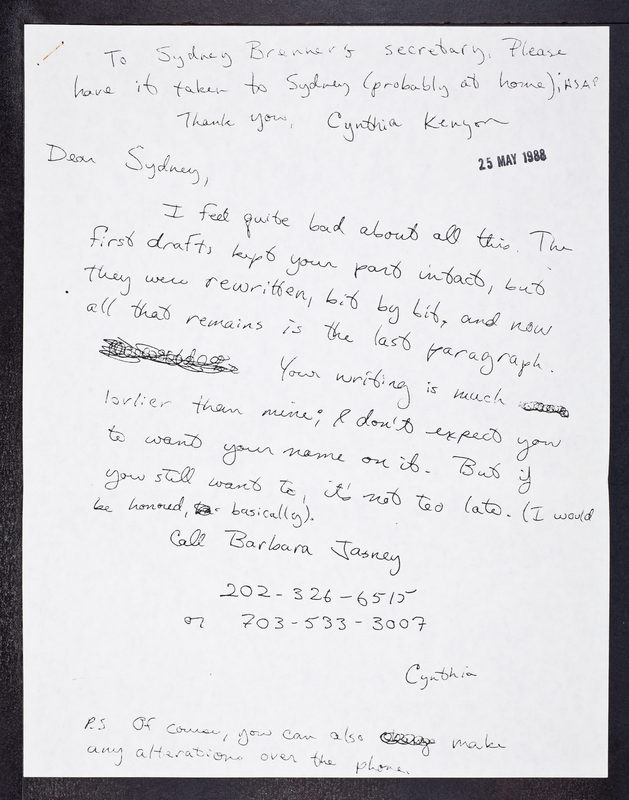 To Sydney Brenner's secretary. Please
have it taken to Sydney (probably at home); ASAP
Thank you, Cynthia Kenyon
25 MAY 1988
Dear Sydney,
I feel quite bad about all this. The
first drafts kept your part intact, but
they were rewritten, bit by bit, and now
all that remains is the last paragraph.
Your writing is much
lovlier than mine; I don't expect you
to want your name on it. But if
you still want to, it's not too late. (I would
be honoured, basically).
Call Barbara Jasney
202-326-6515
or 703-533-3007
Cynthia
P.S Of course, you can also make
any alterations over the phone.